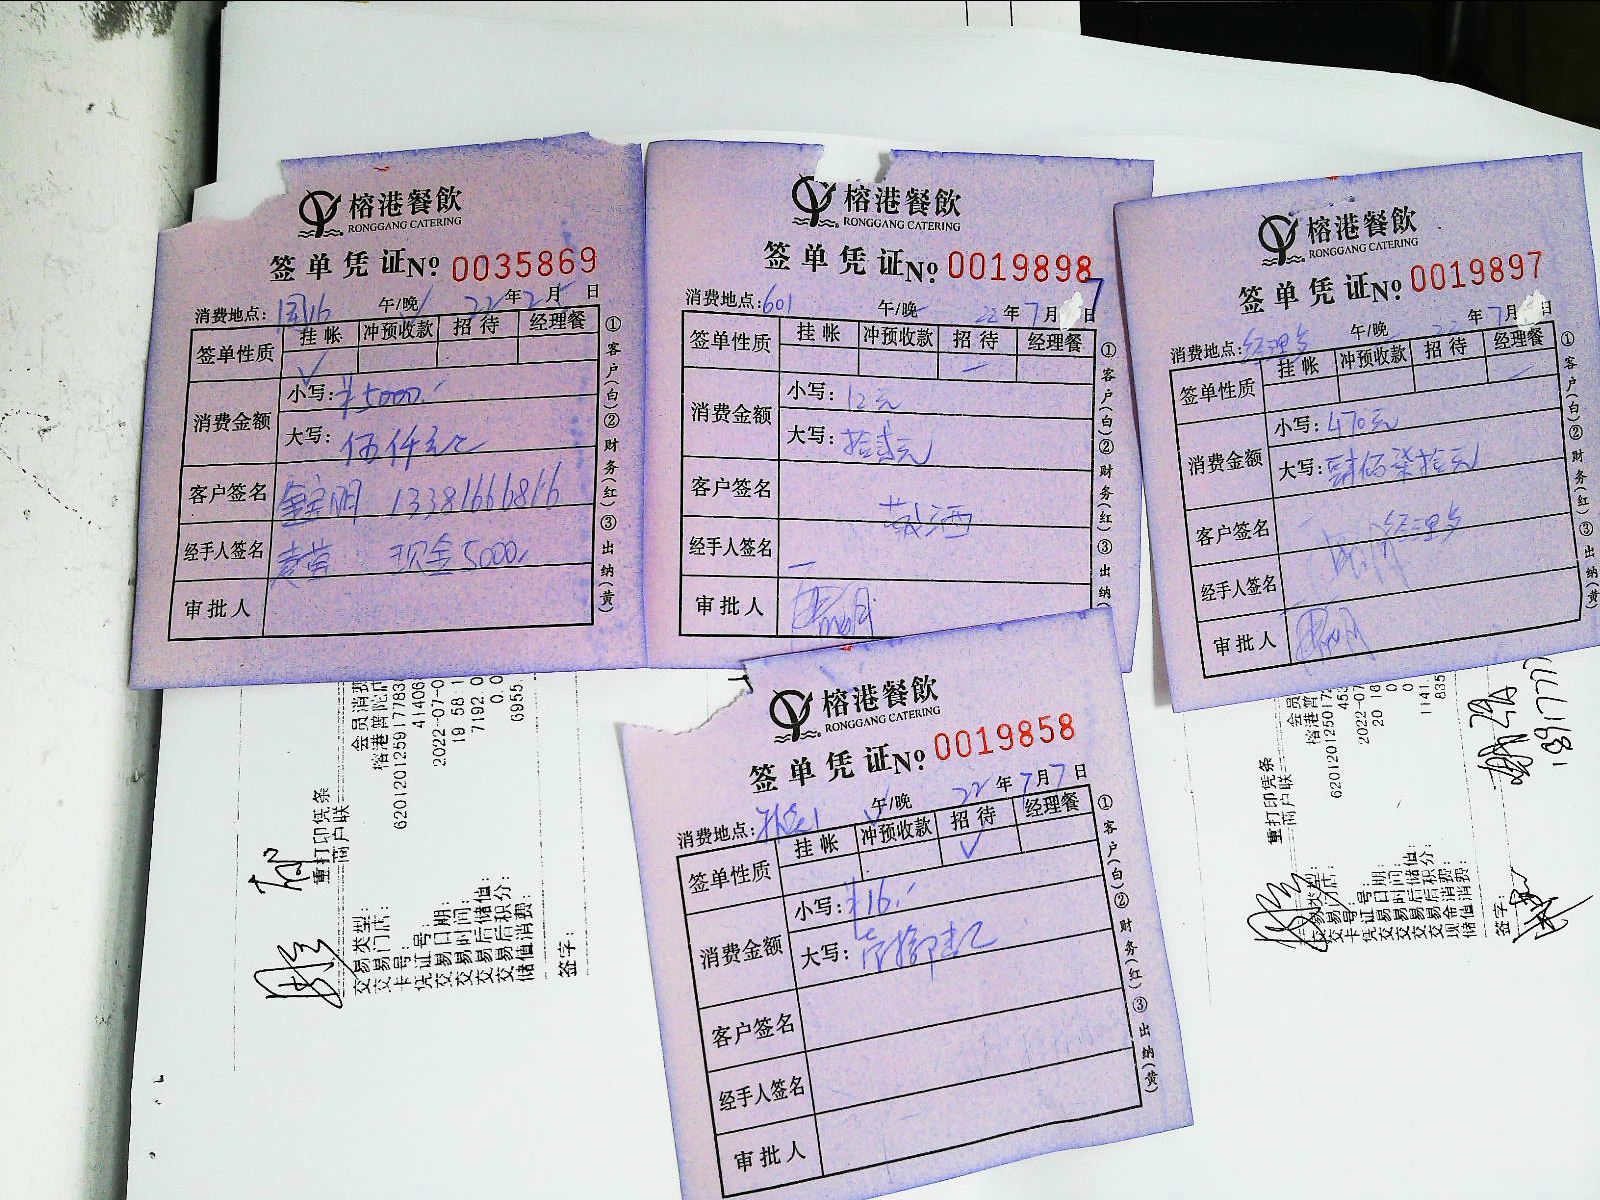 榕港餐飲
RONGGANG CATERING
签单凭证 No 0035869
消费地点: 午/晚 22年2月5日
签单性质 挂帐 冲预收款 招待 经理餐
✓
消费金额 小写: ¥5000.
大写: 伍仟元
客户签名 13381666816
经手人签名 现金5000
审批人
①客户(白)②财务(红)③出纳(黄)
榕港餐飲
RONGGANG CATERING
签单凭证 No 0019898
消费地点:601 午/晚 22年7月7日
签单性质 挂帐 冲预收款 招待 经理餐
消费金额 小写: 12元
大写: 拾贰元
客户签名
经手人签名
审批人
①客户(白)②财务(红)③出纳
榕港餐飲
RONGGANG CATERING
签单凭证 No 0019897
消费地点:经理 午/晚 22年7月 日
签单性质 挂帐 冲预收款 招待 经理餐
消费金额 小写: 470元
大写: 肆佰柒拾元
客户签名 经理
经手人签名
审批人
①客户(白)②财务(红)③出纳(黄)
榕港餐飲
RONGGANG CATERING
签单凭证 No 0019858
消费地点: 午/晚 22年7月7日
签单性质 挂帐 冲预收款 招待 经理餐
✓
消费金额 小写: ¥16.
大写:
客户签名
经手人签名
审批人
①客户(白)②财务(红)③出纳(黄)
重打印凭条
商户联
交易类型: 会员消费
交易门店: 榕港普陀店
卡号: 620120125917783
凭证号: 41406
交易日期: 2022-07-0
交易时间: 19 58 1
交易后储值: 7192.0
交易后积分: 0.0
储值消费: 6955.
签字:
重打印凭条
商户联
交易类型: 会员
交易门店: 榕港普
卡号: 620120125017
凭证号: 453
交易日期: 2022-07
交易时间: 20 16
交易后储值: 0
交易后积分: 0
现金消费: 1141
储值消费: 835
签字:
181777